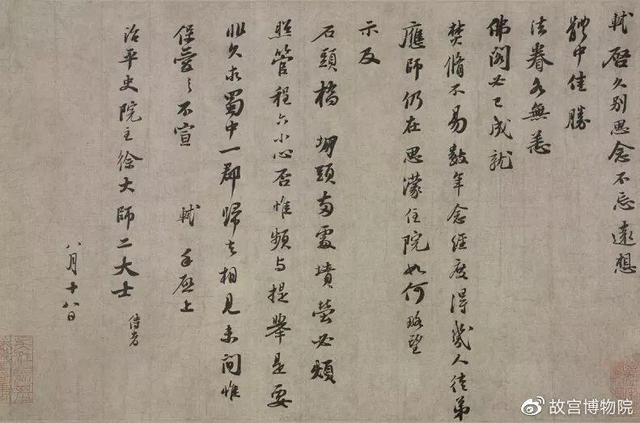 軾啓久别思念不忘遠想
體中佳勝
法眷各無恙
佛閣必已成就
焚脩不易數年念經度得幾人徒弟
應師仍在思濛住院如何略望
示及
石頭橋堋頭兩處墳塋必煩
照管程六小心否惟頻與提舉是要
非久求蜀中一郡歸去相見未間惟
保愛之不宣 軾手啓上
治平史院主徐大師二大士 侍者
八月十八日
故宫博物院